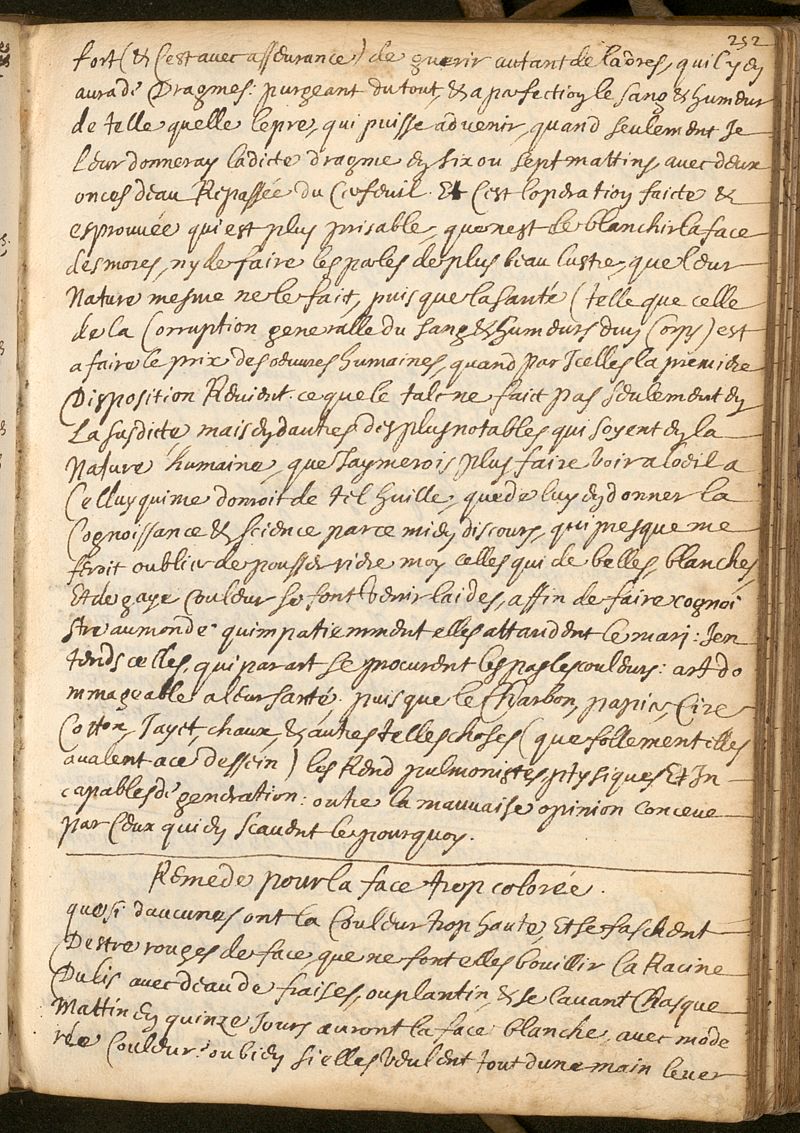 252
fort (& c'est avec asseurance) de guerir autant de ladres, quil y en
aura de Dragmes: purgeant du tout, & a perfection le sang & humeur
de telle quelle lepre, qui puisse advenir, quand seulement Je
leur donneray ladicte dragme en six ou sept mattins avec deux
onces deau Repassée du Cerfeuil. Et cest loperation faicte &
esprouvée qui est plus prisable, que nest de blanchir la face
des mores, ny de faire les pales de plus beau lustre, que leur
Nature mesme ne le fait, puis que la santé (telle que celle
de la Corruption generalle du sang & humeurs dun Corps) est
a faire le prix des oeuvres humaines, quand par Icelles la premiere
Disposition Revient. ce que le talc ne faict pas seulement en
La susdicte mais en d'autres des plus notables qui soyent en la
Nature humaine, que Jaymerois plus faire voir a loeil a
Celluy qui me donroit de tel huille, que de luy en donner la
Cognoissance & science par ce mien discours, qui presque me
feroit oublier de pousser derriere moy celles qui de belles, blanches,
Et de gaye couleur se font venir laides, affin de faire cognoi
stre au monde quimpatiemment elles attandent le mary: Jen
tends celles, qui par art se procurent les pasles couleurs: art do
mmageable a leur santé. puis que le Charbon, papier, Cire
Cotton, Jayet, chaux, & autres telles choses (que follement elles
avalent a ce dessein) les Rend pulmonistes, ptysiques Et In
capables de generation: outre la mauvaise opinion conceue
par Ceux qui en scavent le pourquoy.
Remede pour la face trop colorée.
que si d'aucunes ont la Couleur trop haute, Et se faschent
Destre rouges de face que ne font elles bouillir la Racine
Du lis avec deau de fraises, ou plantin, & se lavant Chasque
Mattin en quinze Jours auront la face blanche, avec mode
rée Couleur: ou bien si elles veulent tout dune main lever